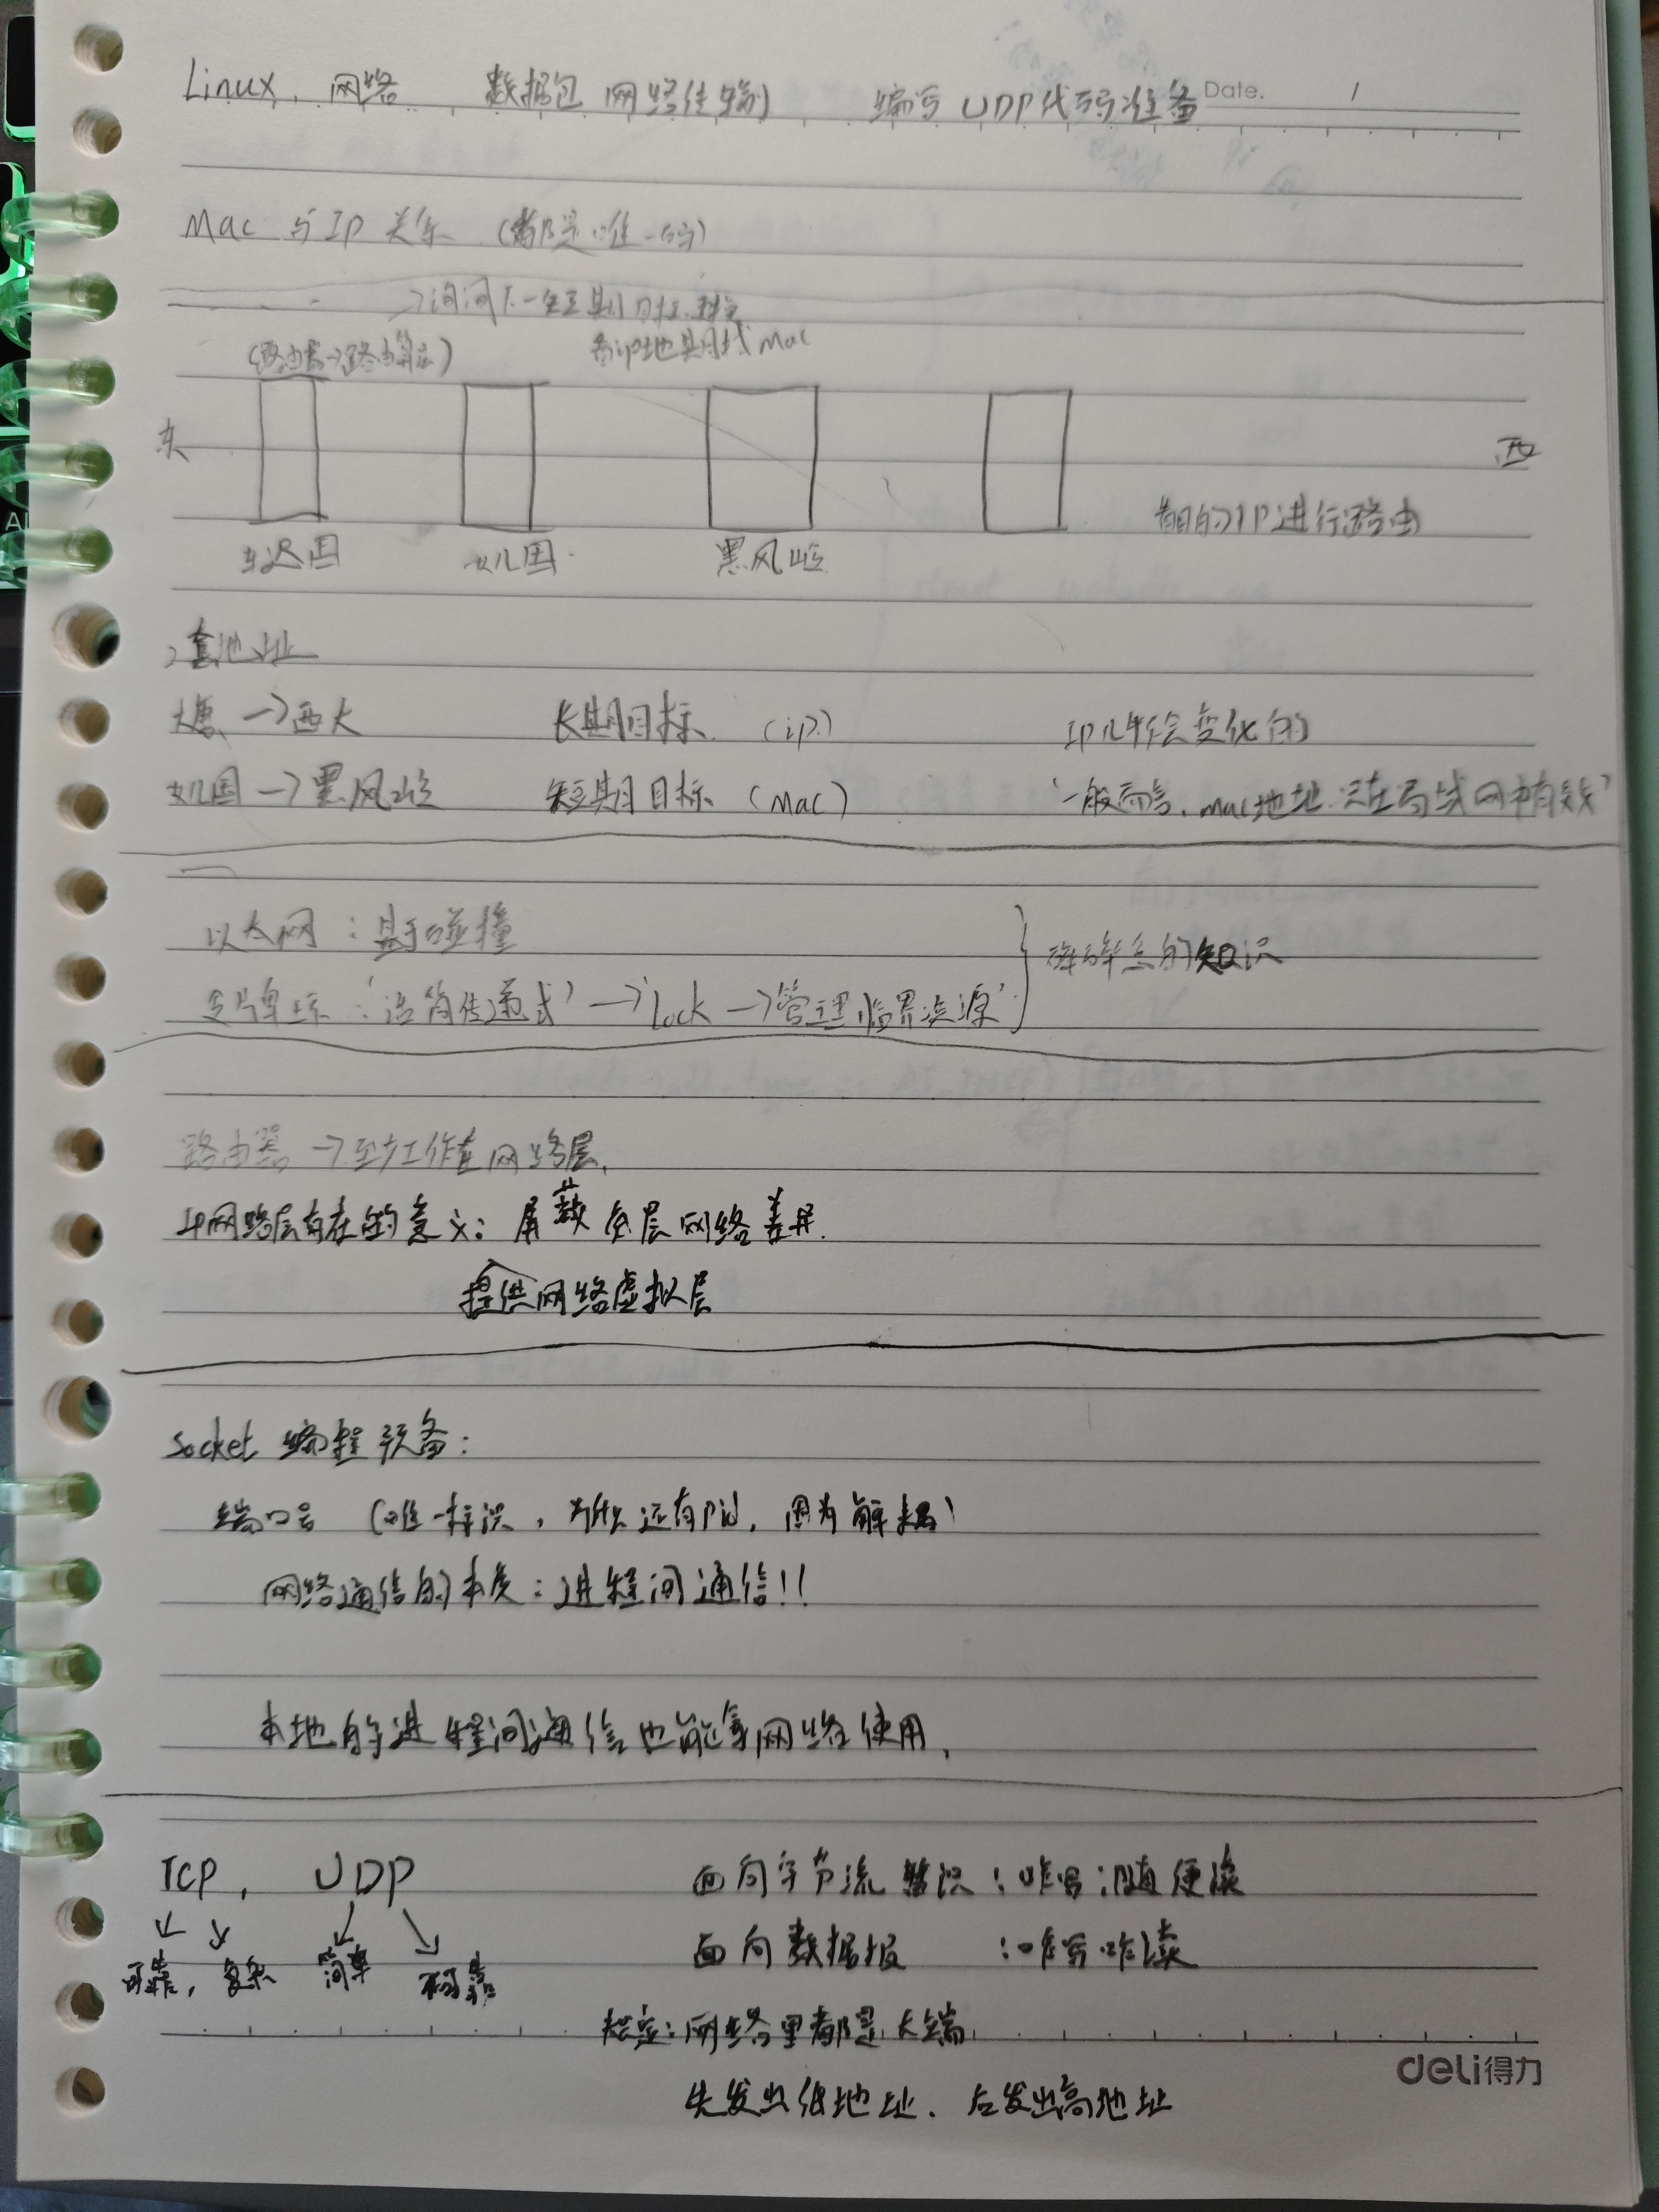 Linux. 网络 数据包 网络传输 编写UDP代码准备 Date. /
Mac 与 IP 关系 (都是唯一的)
→询问下一短期目标
(路由器→路由算法) 看ip地址 Mac
东 西
看目的IP进行路由
车迟国 女儿国 黑风岭
2套地址
大唐→西天 长期目标 (ip) IP几乎不会变化的
女儿国→黑风岭 短期目标 (Mac) "一般而言,mac地址只在局域网中有效"
以太网:基于碰撞
令牌环:"话筒传递式"→lock→"管理临界资源" } 的知识
路由器→至少工作在网络层,
IP网络层存在的意义:屏蔽底层网络差异.
提供网络虚拟层
Socket 编程预备:
端口号 (唯一标识,为什么还有Pid,因为解耦)
网络通信的本质:进程间通信!!
本地的进程间通信也能拿网络使用,
TCP, UDP 面向字节流 :咋写;随便读
可靠,复杂 简单 不可靠 面向数据报 :咋写咋读
规定:网络里都是大端,
先发出低地址.后发出高地址
deli得力